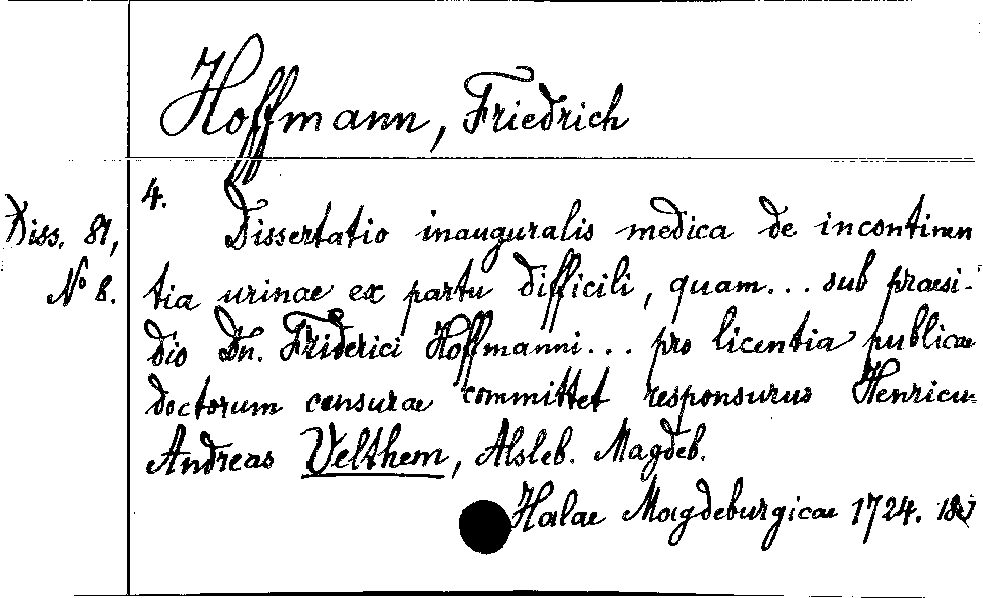 Hoffmann, Friedrich
4.
Diss. 81,
N° 8.
Dissertatio inauguralis medica de incontinen
tia urinae ex partu difficili, quam... sub praesi-
dio Dn. Friderici Hoffmanni... pro licentia publicae
doctorum censurae committet responsurus Henricus
Andreas Velthem, Alsleb. Magdeb.
Halae Magdeburgicae 1724.